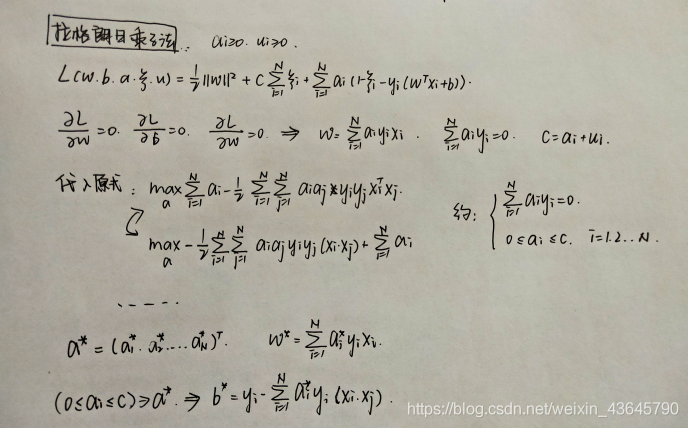 拉格朗日乘子法: ai≥0. ui≥0.
L(w.b.a.ξ.u) = 1/2 ||w||² + C ∑_{i=1}^{N} ξi + ∑_{i=1}^{N} ai (1-ξi - yi(wᵀxi+b)).
∂L/∂w =0. ∂L/∂b =0. ∂L/∂w =0 ⇒ w= ∑_{i=1}^{N} aiyixi . ∑_{i=1}^{N} aiyi=0. C=ai+ui.
代入原式: max_a ∑_{i=1}^{N} ai - 1/2 ∑_{i=1}^{N} ∑_{j=1}^{N} aiaj*yiyjxiᵀxj. 约: { ∑_{i=1}^{N} aiyi=0.
0≤ai≤c. i=1.2...N.
max_a - 1/2 ∑_{i=1}^{N} ∑_{j=1}^{N} aiajyiyj(xi·xj) + ∑_{i=1}^{N} ai
......
a* = (a1*.a2*....aN*)ᵀ. w* = ∑_{i=1}^{N} ai*yixi.
(0≤ai≤c)⇒a*. ⇒ b* = yj - ∑_{i=1}^{N} ai*yi(xi·xj).
https://blog.csdn.net/weixin_43645790